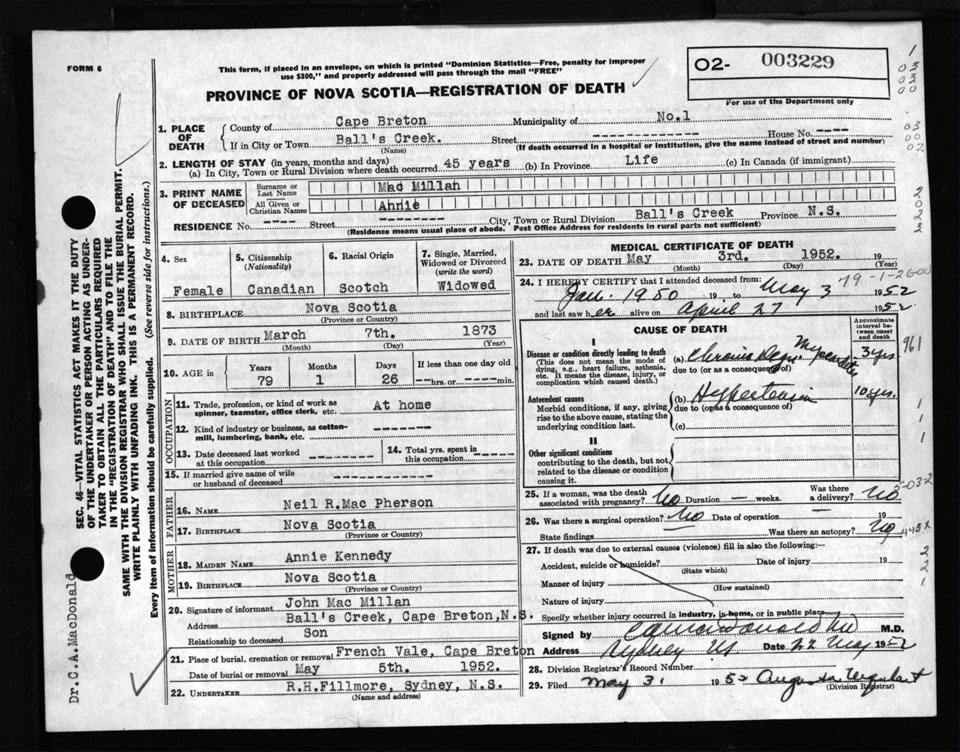 FORM 6
This form, if placed in an envelope, on which is printed "Dominion Statistics—Free, penalty for improper
use $300," and properly addressed will pass through the mail "FREE"
PROVINCE OF NOVA SCOTIA—REGISTRATION OF DEATH
O2- 003229
For use of the Department only
1. PLACE OF DEATH
County of Cape Breton Municipality of No.1
If in City or Town Ball's Creek. Street ---- House No. ----
(Name) (If death occurred in a hospital or institution, give the name instead of street and number)
2. LENGTH OF STAY (in years, months and days)
(a) In City, Town or Rural Division where death occurred 45 years (b) In Province Life (c) In Canada (if immigrant)
3. PRINT NAME OF DECEASED
Surname or Last Name Mac Millan
All Given or Christian Names Annie
RESIDENCE No. ---- Street ---- City, Town or Rural Division Ball's Creek Province N.S.
(Residence means usual place of abode. Post Office Address for residents in rural parts not sufficient)
4. Sex
Female
5. Citizenship
(Nationality)
Canadian
6. Racial Origin
Scotch
7. Single, Married,
Widowed or Divorced
(write the word)
Widowed
8. BIRTHPLACE Nova Scotia
(Province or Country)
9. DATE OF BIRTH March 7th. 1873
(Month) (Day) (Year)
10. AGE in
Years Months Days If less than one day old
79 1 26 --hrs. or --min.
OCCUPATION
11. Trade, profession, or kind of work as At home
spinner, teamster, office clerk, etc.
12. Kind of industry or business, as cotton-
mill, lumbering, bank, etc. ----
13. Date deceased last worked
at this occupation ----
14. Total yrs. spent in
this occupation ----
15. If married give name of wife
or husband of deceased ----
FATHER
16. NAME Neil R.Mac Pherson
17. BIRTHPLACE Nova Scotia
(Province or Country)
MOTHER
18. MAIDEN NAME Annie Kennedy
19. BIRTHPLACE Nova Scotia
(Province or Country)
20. Signature of informant John Mac Millan
Address Ball's Creek, Cape Breton,N.S.
Relationship to deceased Son
21. Place of burial, cremation or removal French Vale, Cape Breton
Date of burial or removal May 5th. 1952.
22. UNDERTAKER R.H.Fillmore, Sydney, N.S.
(Name and address)
MEDICAL CERTIFICATE OF DEATH
23. DATE OF DEATH May 3rd. 1952. 19
(Month) (Day) (Year)
24. I HEREBY CERTIFY that I attended deceased from:
Jan. 1950 19 , to May 3 1952
79-1-26
and last saw her alive on April 27 1952
CAUSE OF DEATH
Approximate interval between onset and death
I
Disease or condition directly leading to death
(This does not mean the mode of
dying, e.g., heart failure, asthenia,
etc. It means the disease, injury, or
complication which caused death.)
(a) Chronic Myocarditis 3 yrs.
due to (or as a consequence of)
Antecedent causes
Morbid conditions, if any, giving
rise to the above cause, stating the
underlying condition last.
(b) Hypertension 10 yrs.
due to (or as a consequence of)
(c)
II
Other significant conditions
contributing to the death, but not
related to the disease or condition
causing it.
25. If a woman, was the death
associated with pregnancy? No Duration — weeks. Was there a delivery? No
26. Was there a surgical operation? No Date of operation — 19
State findings Was there an autopsy? No
27. If death was due to external causes (violence) fill in also the following:—
Accident, suicide or homicide? Date of injury 19
(State which)
Manner of injury
(How sustained)
Nature of injury
Specify whether injury occurred in industry, in home, or in public place
Signed by M.D.
Address Sydney NS Date 22 May 1952
28. Division Registrar's Record Number
29. Filed May 31 1952 Augusta Urquhart
(Division Registrar)
SEC. 46—VITAL STATISTICS ACT MAKES IT THE DUTY
OF THE UNDERTAKER OR PERSON ACTING AS UNDER-
TAKER TO OBTAIN ALL THE PARTICULARS REQUIRED
IN THE "REGISTRATION OF DEATH" AND TO FILE THE
SAME WITH THE DIVISION REGISTRAR WHO SHALL ISSUE THE BURIAL PERMIT.
WRITE PLAINLY WITH UNFADING INK. THIS IS A PERMANENT RECORD.
Every item of information should be carefully supplied. (See reverse side for instructions.)
Dr. C.A.MacDonald
1
03
03
00
03
00
02
2
0
2
2
961
1
1
1
5-032
443X
2
2
1